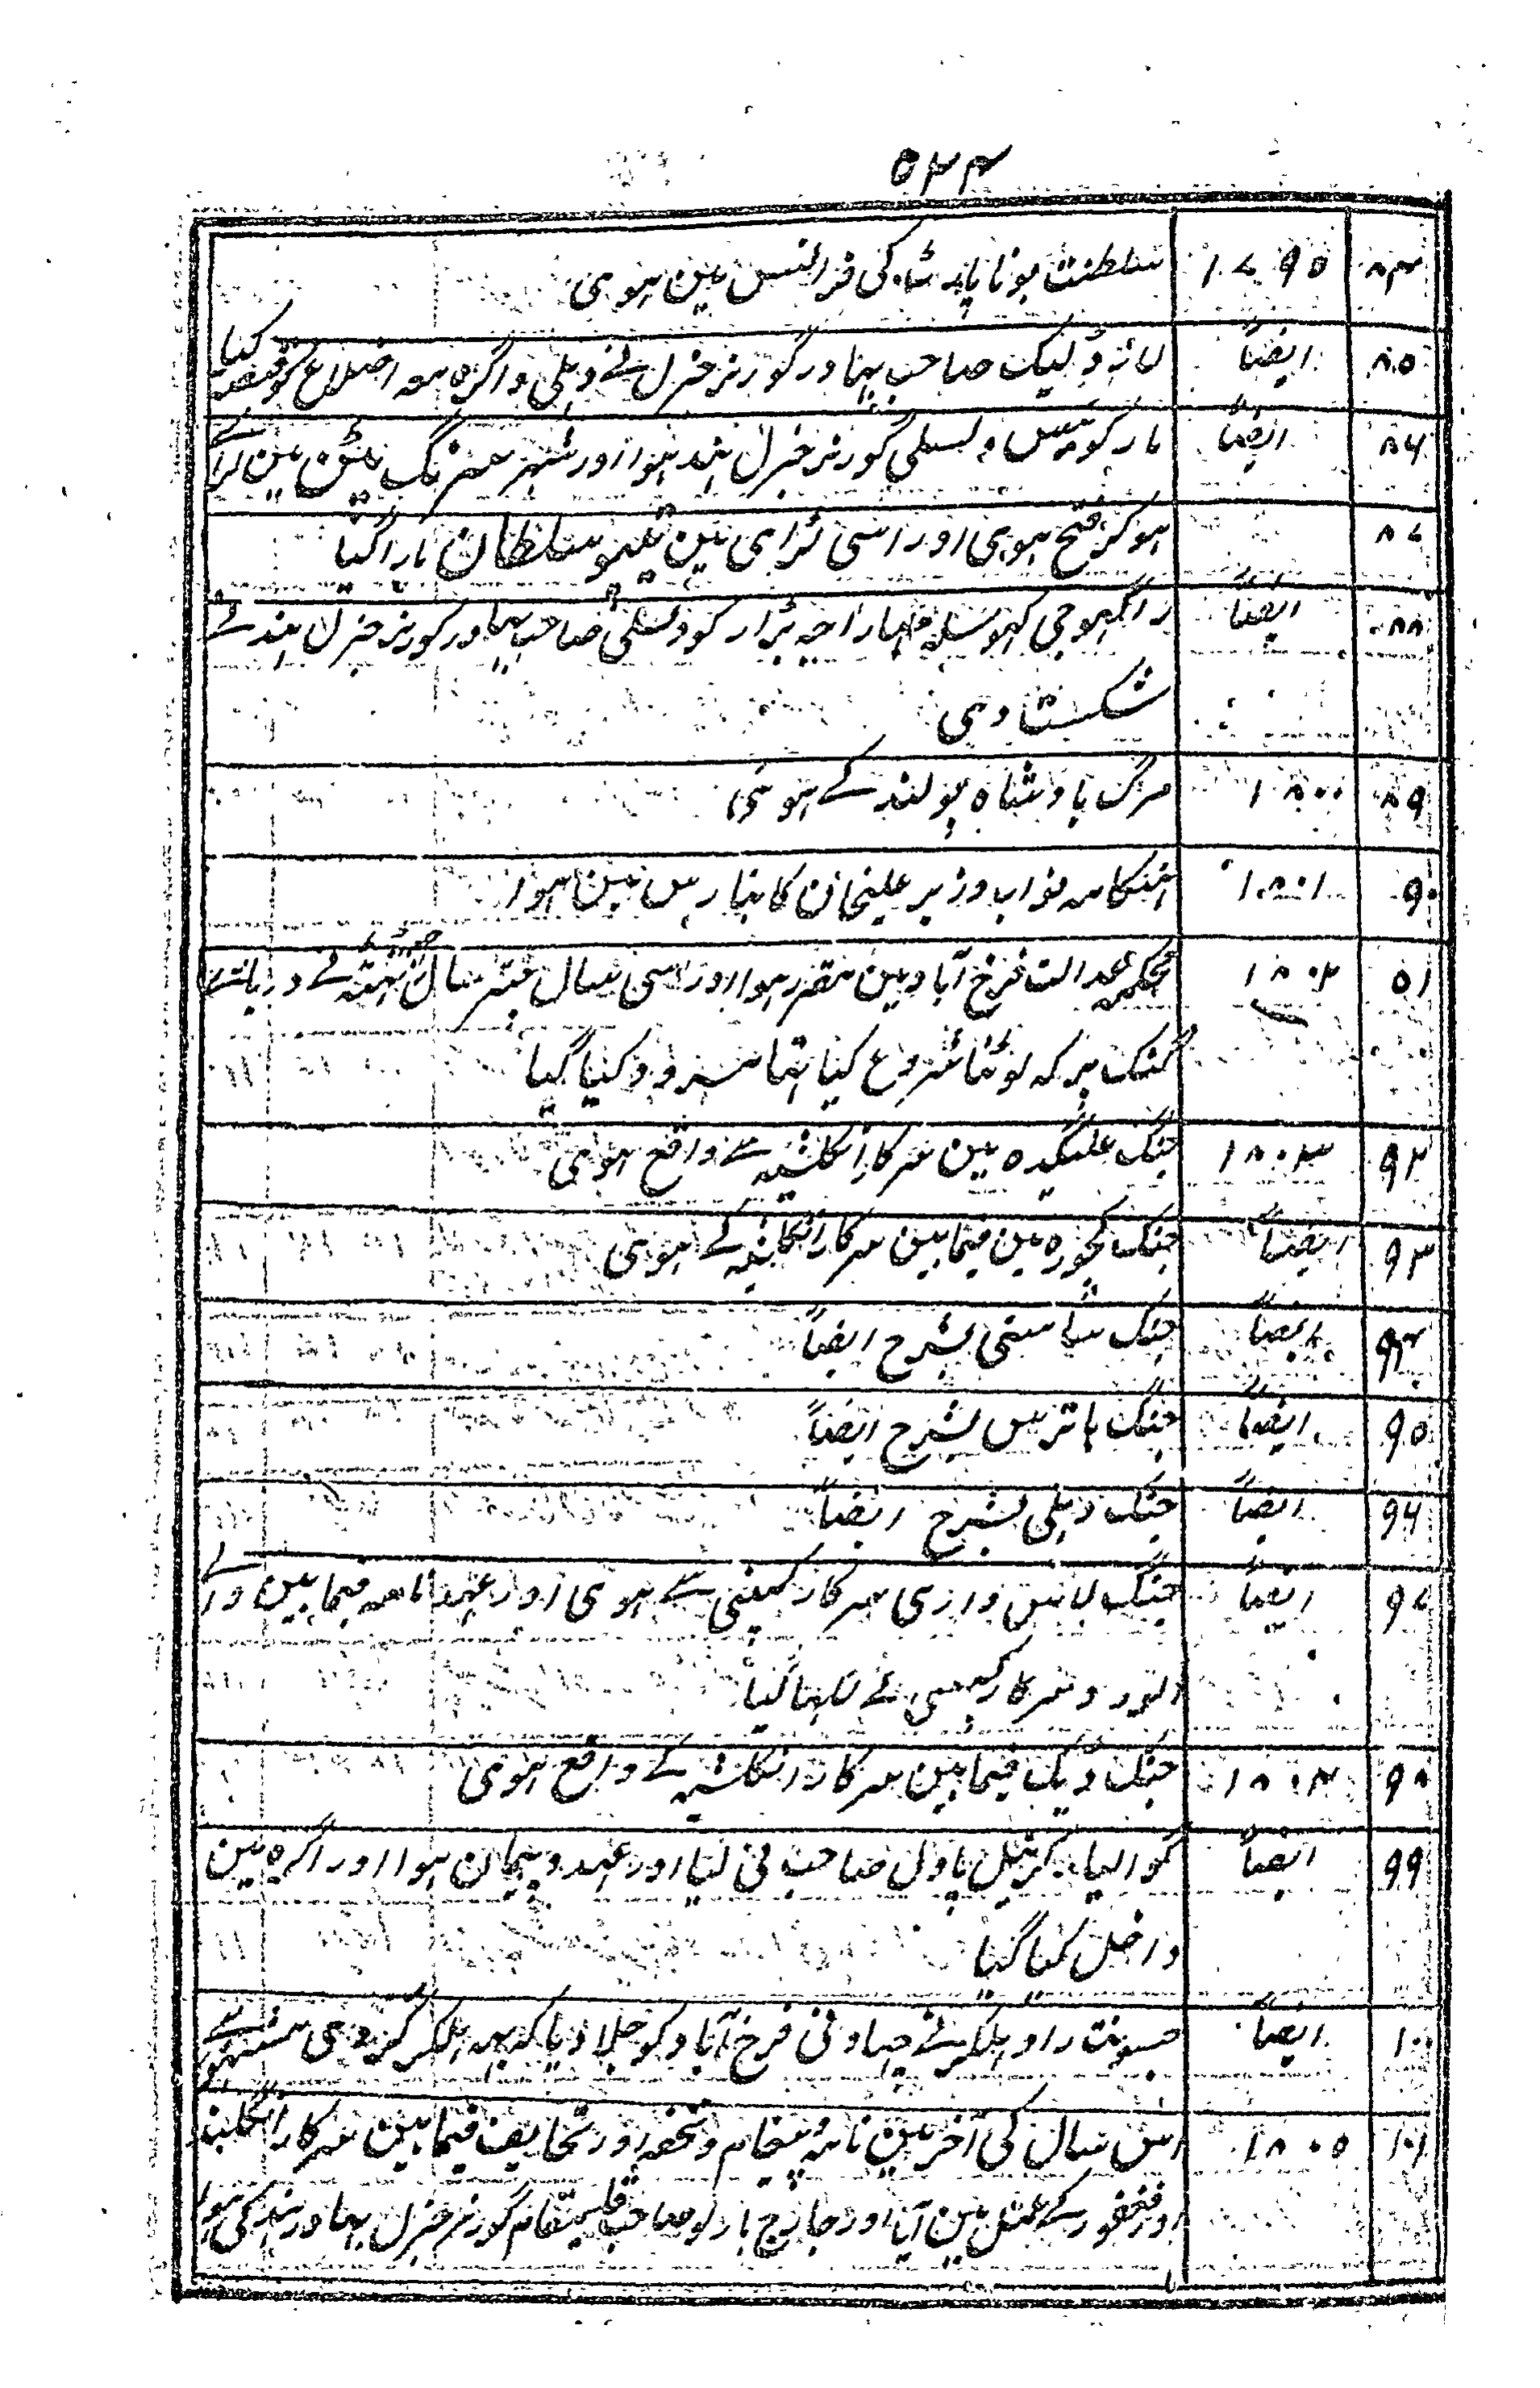 ۵۳۴
۸۴ ۱۷۹۵ سلطنت بونا پارٹ کی فرانس مین ہوہی
۸۵ ایضاً لارڈ لیک صاحب بہادر گورنر جنرل نے دہلی و اگرہ معہ اضلاع کو قبضہ کیا
۸۶ ایضاً مارکوئیس ولسلی گورنر جنرل ہند ہوا اور شہر سرنگ پٹن مین لڑاے
۸۷ ہوکر فتح ہوہی اور اسی لڑاہی مین ٹیپو سلطان مارا گیا
۸۸ ایضاً راگہوجی بہوسلہ مہاراجہ برار کو ولسلی صاحب بہادر گورنر جنرل ہند نے
شکست دہی
۸۹ ۱۸۰۰ مرگ بادشاہ پولند کے ہوئی
۹۰ ۱۸۰۱ ہنگامہ نواب وزیر علیخان کا بنارس مین ہوا
۵۱ ۱۸۰۲ محکمہ عدالت فرخ آباد مین مقرر ہوا اور اسی سال نے دریاے
گنگ پر کہ لوٹنا شروع کیا تہا کیا گیا
۹۲ ۱۸۰۳ جنگ علیگدہ مین سرکار انگلشیہ سے واقع ہوہی
۹۳ ایضاً جنگ کچورہ مین فیمابین سرکار انگلشیہ کے ہوہی
۹۴ ایضاً جنگ ساسنی بشرح ایضاً
۹۵ ایضاً جنگ ہاترس بشرح ایضاً
۹۶ ایضاً جنگ دہلی بشرح ایضاً
۹۷ ایضاً جنگ لاسواری سرکار کمپنی سے ہوہی اور عہدنامہ فیمابین والے
الور و سرکار کمپنی کے لکہا گیا
۹۸ ۱۸۰۴ جنگ ڈیگ فیمابین سرکار انگلشیہ کے واقع ہوہی
۹۹ ایضاً گوالیار کرنیل پاول صاحب نی لیا اور عہد و پیمان ہوا اور اگرہ مین
داخل کیا گیا
۱۰۰ ایضاً جسونت راو ہلکر نے چہاونی فرخ آباد کو جلا دیا کہ یہہ ہلکر گردی مشہور ہے
۱۰۱ ۱۸۰۵ اس سال کی آخر مین نامہ و پیغام و تحفہ اور تحایف فیمابین سرکار انگلشیہ
اور فغفور کے عمل مین آیا اور جارج بارلو صاحب قایممقام گورنر جنرل بہادر ہند کی ہوا